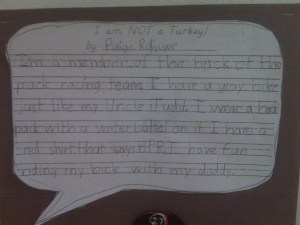 I am NOT a Turkey!
by Paige
I'm a member of the back of the
pack racing team. I have a gray bike
just like my Uncle Judd. I wear a back
pack with a water bottel on it. I have a
red shirt that says B.P.R. I have fun
riding my bick with my daddy.